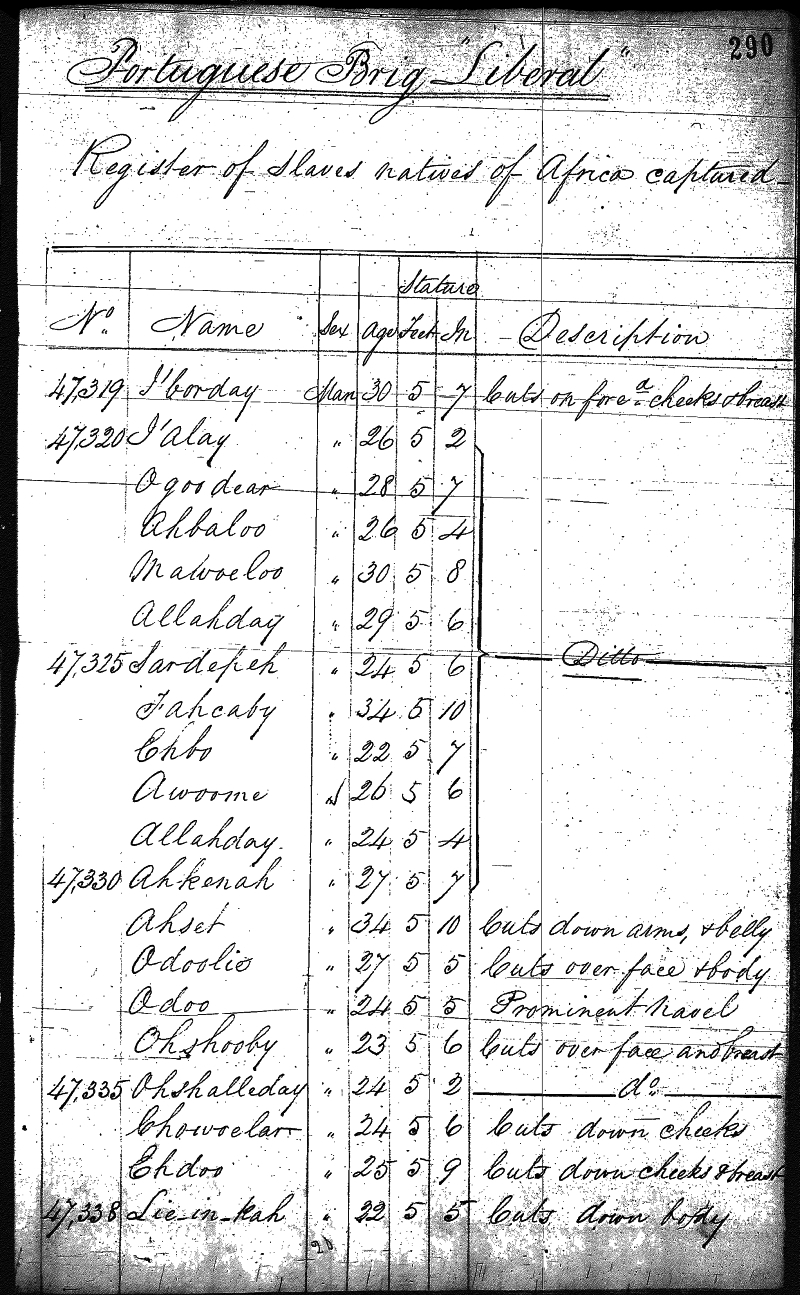 290
Portuguese Brig "Liberal"
Register of slaves natives of Africa captured
Stature
No. Name Sex Age Feet In Description
47,319 I'borday Man 30 5 7 Cuts on fored. cheeks & breast
47,320 I'Alay " 26 5 2
Ogoodear " 28 5 7
Ahbaloo " 26 5 4
Mawoeloo " 30 5 8
Allahday " 29 5 6
47,325 Sardepeh " 24 5 6 Ditto
Fahcaby " 34 5 10
Ehbo " 22 5 7
Awoome " 26 5 6
Allahday " 24 5 4
47,330 Ahkenah " 27 5 7
Ahset " 34 5 10 Cuts down arms, & belly
Odoolio " 27 5 5 Cuts over face & body
Odoo " 24 5 5 Prominent Navel
Ohshooby " 23 5 6 Cuts over face and breast
47,335 Ohshalleday " 24 5 2 do.
Chowoelar " 24 5 6 Cuts down cheeks
Ehdoo " 25 5 9 Cuts down cheeks & breast
47,338 Lie-in-kah " 22 5 5 Cuts down body
20